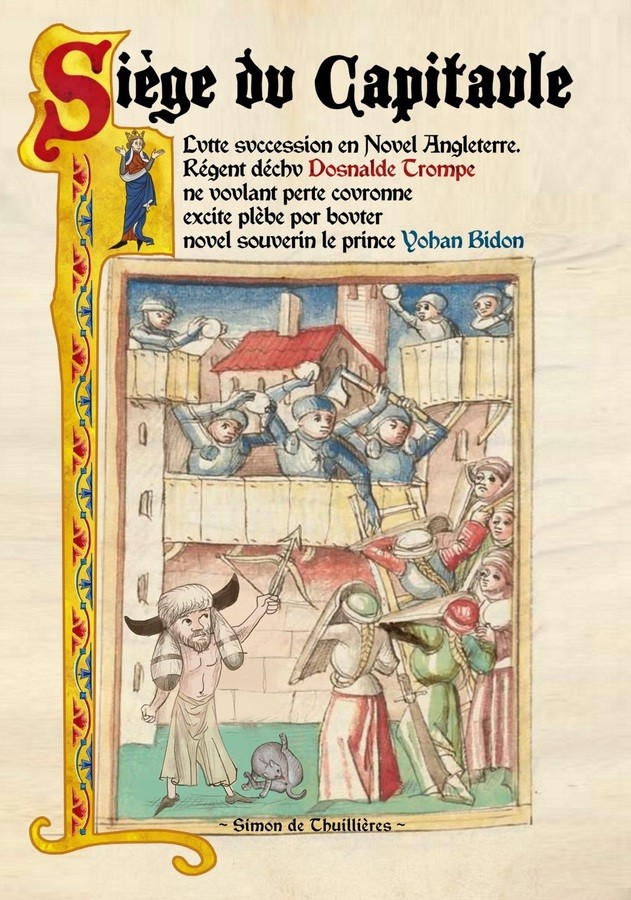 Siège dv Capitavle
Lvtte svccession en Novel Angleterre.
Régent déchv Dosnalde Trompe
ne vovlant perte covronne
excite plèbe por bovter
novel souverin le prince Yohan Bidon
~ Simon de Thuillières ~